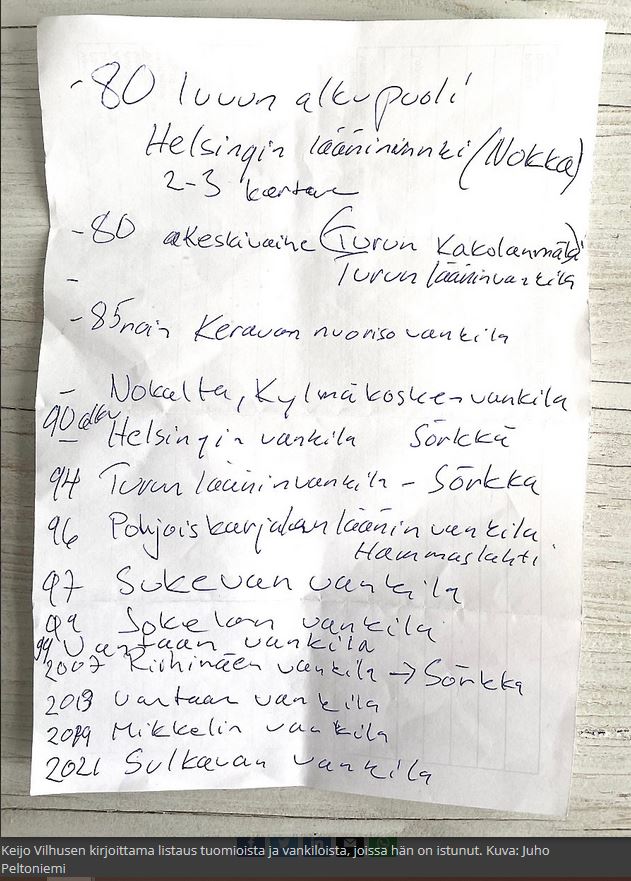 -80 luvun alkupuoli
Helsingin lääninvnki (Nokka)
2-3 kertaa
-80 keskivaihe (Turun Kakolanmäki)
-
Turun lääninvankila
-85 noin Keravan nuorisovankila
- Nokalta, Kylmäkosken vankila
90 alku
- Helsingin vankila Sörkkä
94 Turun lääninvankila - Sörkka
96 Pohjoiskarjalan läänin vankila
Hammaslahti
97 Sukevan vankila
99 Jokelan vankila
99 Vantaan vankila
2007 Riihimäen vankila → Sörkka
2013 Vantaan vankila
2019 Mikkelin vankila
2021 Sulkavan vankila
Keijo Vilhusen kirjoittama listaus tuomioista ja vankiloista, joissa hän on istunut. Kuva: Juho
Peltoniemi